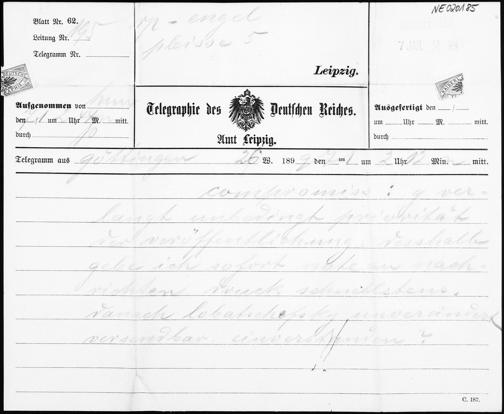 NE020185
Blatt Nr. 62.
Leitung Nr.
Telegramm Nr.
rp - engel
pleisse 5
Leipzig.
Aufgenommen von
den um Uhr M. mitt.
durch
Telegraphie des Deutschen Reiches.
Amt Leipzig.
Ausgefertigt den /
um Uhr M. mitt.
durch
Telegramm aus göttingen 26 W. 189 9 den 7 um 2 Uhr Min. mitt.
compromiss : g ver-
langt unbedingt priorität
der veröffentlichung deshalb
gebe ich sofort note an nach-
richten druck schnellstens.
danach lobatschefsky unverändert
versendbar einverstanden ?
C. 187.